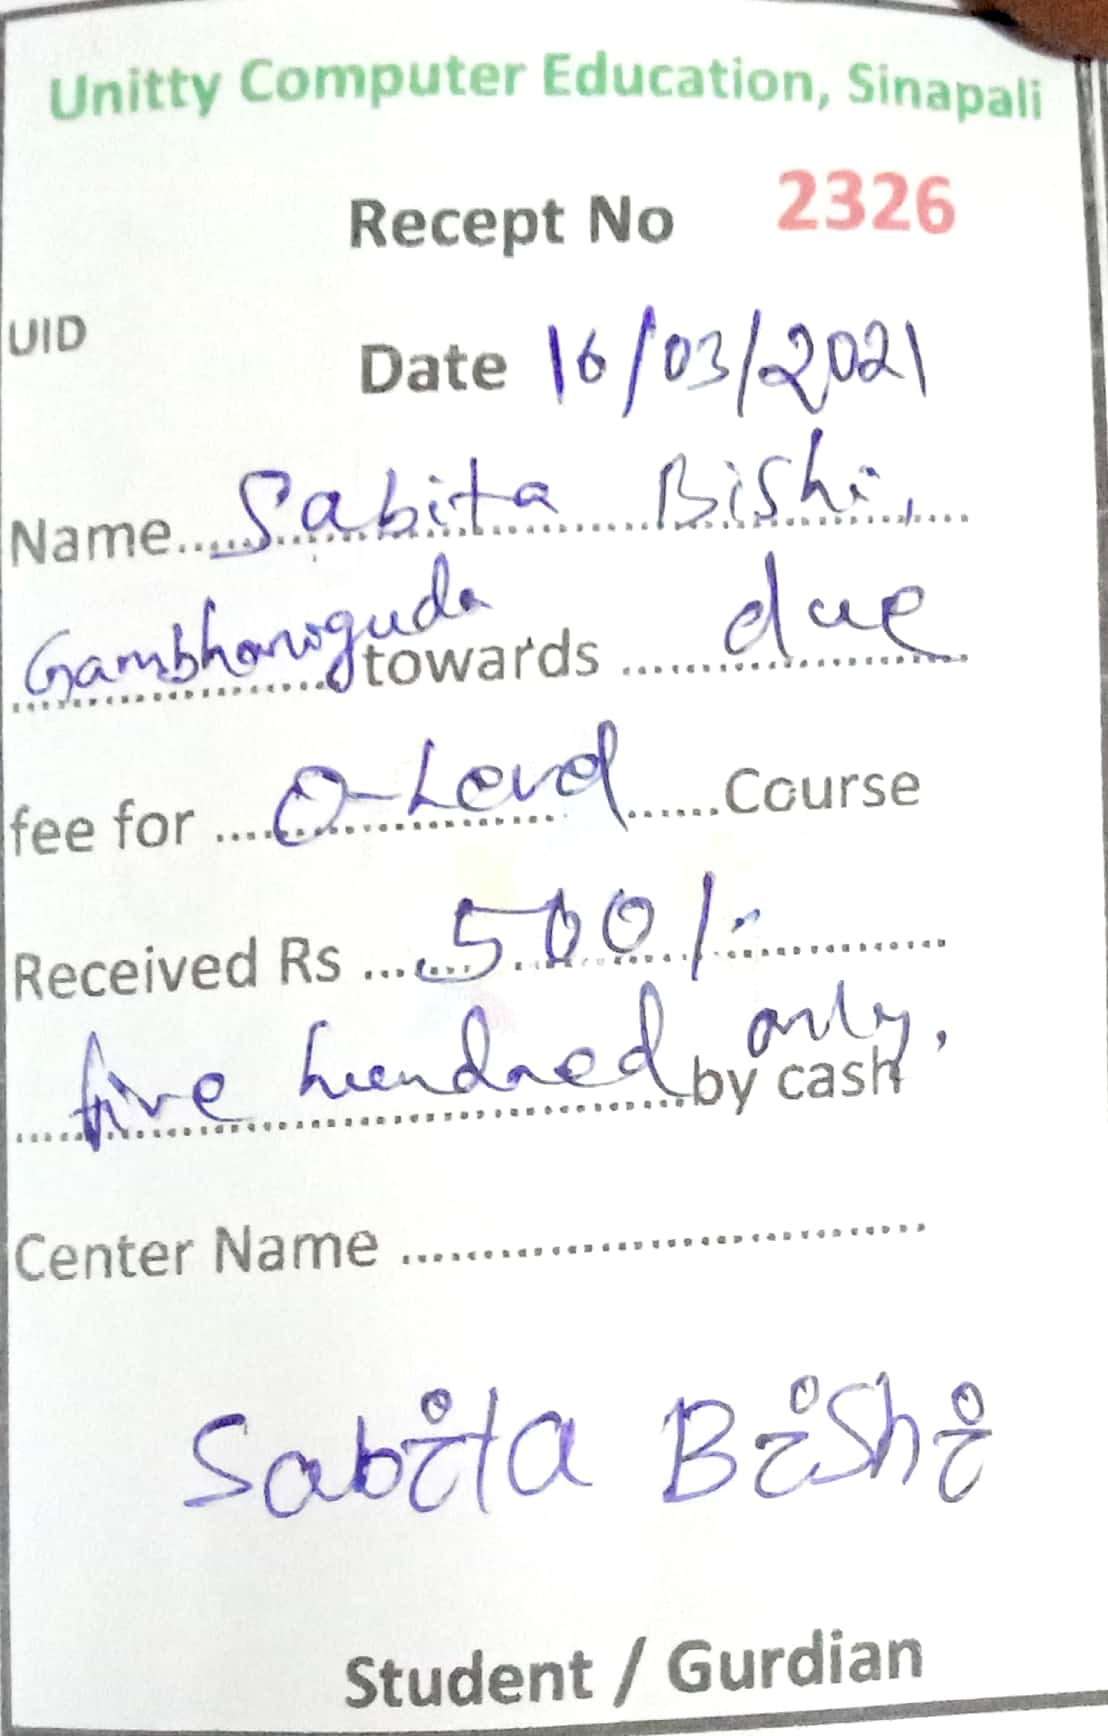 Unitty Computer Education, Sinapali
Recept No 2326
UID
Date 16/03/2021
Name Sabita Bishi,
Gambhariguda towards due
fee for O-Level Course
Received Rs 500/-
five hundred only, by cash
Center Name
Sabita Bishi
Student / Gurdian